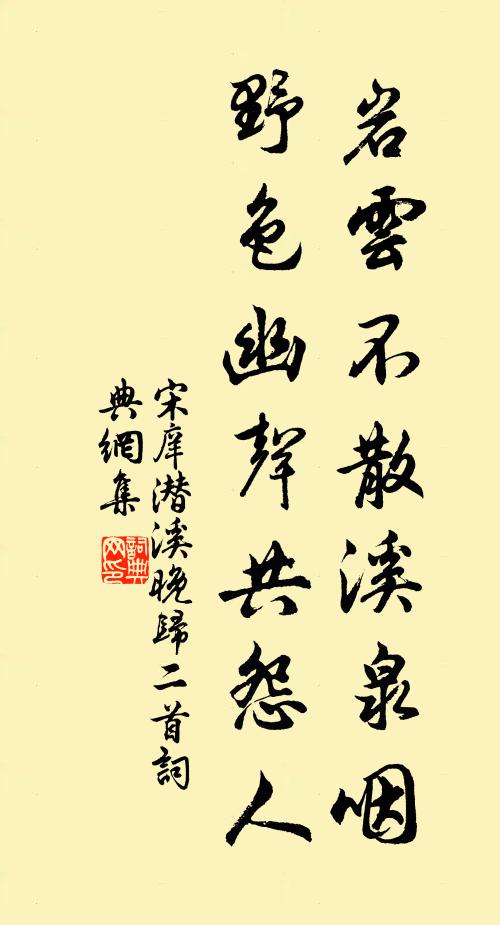 岩雲不散溪泉咽
野色幽聲共怨人
宋庠潜溪晚歸二首詞
典網集
詞典
网印